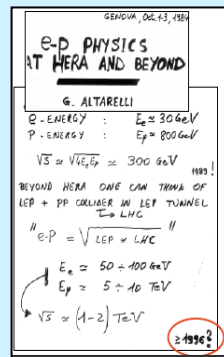 GENOVA, Oct 1-3, 1984
e-p PHYSICS
AT HERA AND BEYOND
G. ALTARELLI
e-ENERGY : Ee ≃ 30 GeV
P-ENERGY : Ep ≃ 800 GeV
√S ≃ √4EeEp ≃ 300 GeV
1989!
BEYOND HERA ONE CAN THINK OF
LEP + PP COLLIDER IN LEP TUNNEL
↳ LHC
"e-P = √LEP * LHC"
Ee ≃ 50 ÷ 100 GeV
Ep ≃ 5 ÷ 10 TeV
√S ≃ (1-2) TeV
≥1996?